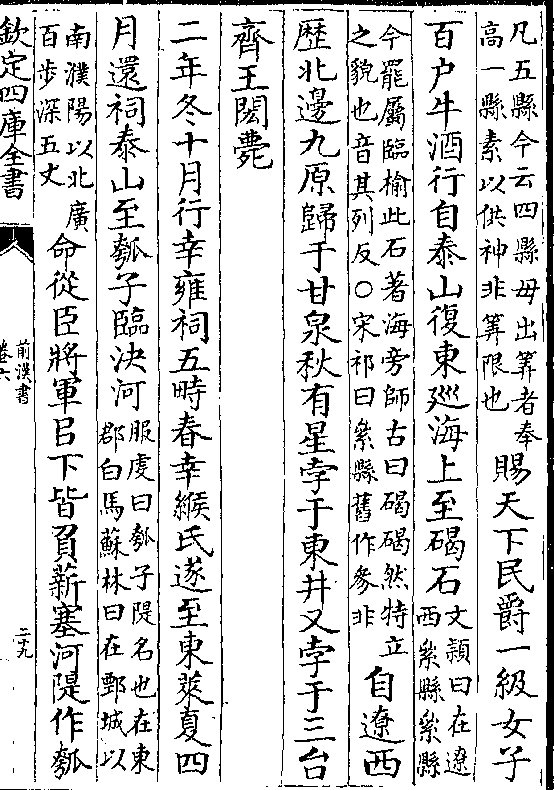 凡五縣今云四縣毋出筭者奉
高一縣素以供神非筭限也
賜天下民爵一級女子
百户牛酒行自泰山復東廵海上至碣石
文頴曰在遼
西絫縣絫縣
今罷屬臨榆此石著海旁師古曰碣碣然特立
之貌也音其列反○宋祁曰絫縣舊作參非
自遼西
歴北邊九原歸于甘泉秋有星孛于東井又孛于三台
齊王閎薨
二年冬十月行幸雍祠五畤春幸緱氏遂至東萊夏四
月還祠泰山至瓠子臨決河
服虔曰瓠子隄名也在東
郡白馬蘇林曰在鄄城以
南濮陽以北廣
百步深五丈
命從臣將軍㠯下皆負薪塞河隄作瓠
欽定四庫全書
前漢書
卷六
二十九